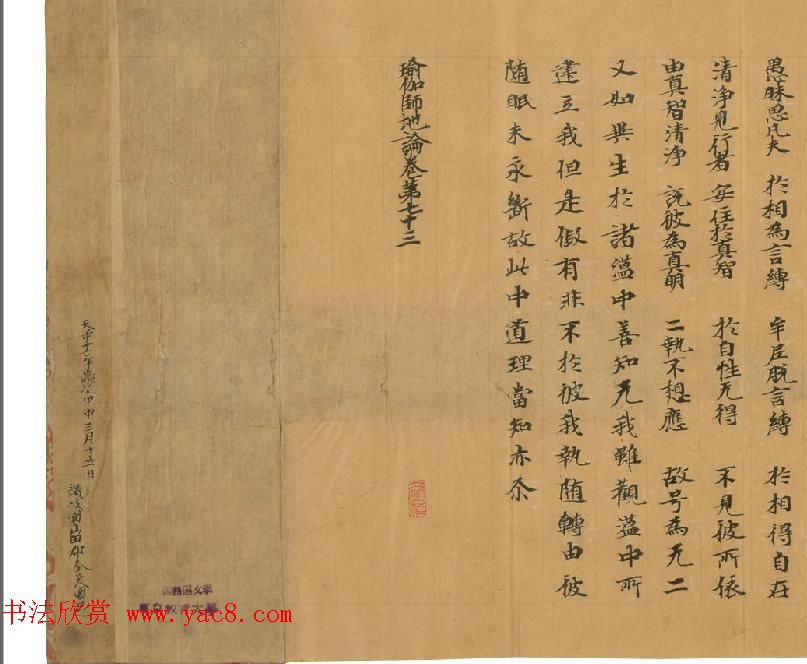 愚昧思凡夫 於相為言縛 牢尼脫言縛 於相得自在
清淨見行者 安住於真智 於自性无得 不見彼所依
由真智清淨 說彼為真明 二執不想應 故号為无二
又如異生於諸蘊中善知无我雖觀蘊中所
建立我但是假有非不於彼我執随轉由彼
随眠未永斷故此中道理當知亦尒
瑜伽師地論卷第七十三
天平十六年歲次甲申三月十五日
讃岐國
书法欣赏 www.yac8.com